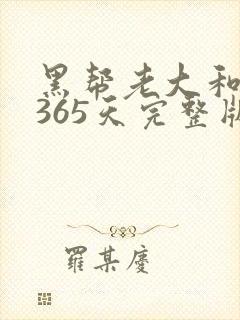 黑帮老大和
365天完整版
羅某慶